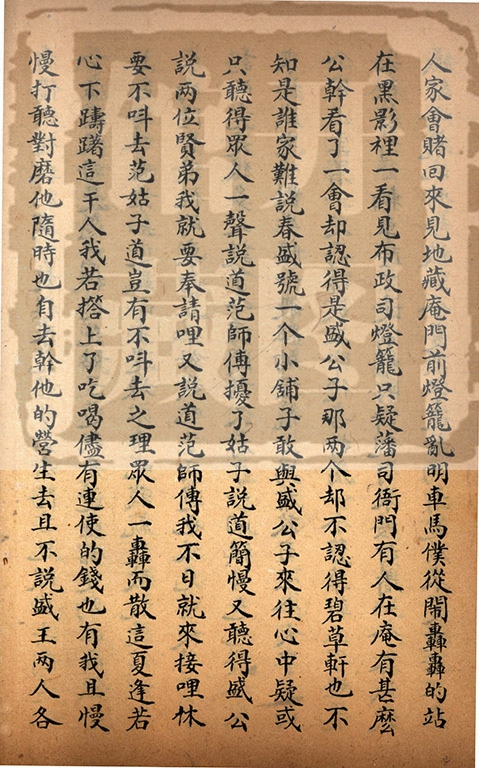 人家會賭回來見地藏庵門前燈籠亂明車馬僕從鬧轟轟的站
在黑影裡一看見布政司燈籠只疑藩司衙門有人在庵有甚麼
公幹看了一會却認得是盛公子那两个却不認得碧草軒也不
知是誰家難説春盛號一个小舖子敢與盛公子來往心中疑或
只聽得眾人一聲説道范師傅擾了姑子説道簡慢又聽得盛公
説两位賢弟我就要奉請哩又説道范師傅我不日就來接哩休
要不呌去范姑子道豈有不呌去之理眾人一轟而散這夏逢若
心下躊躇這干人我若搭上了吃喝儘有連使的錢也有我且慢
慢打聽對磨他隨時也自去幹他的營生去且不説盛王两人各